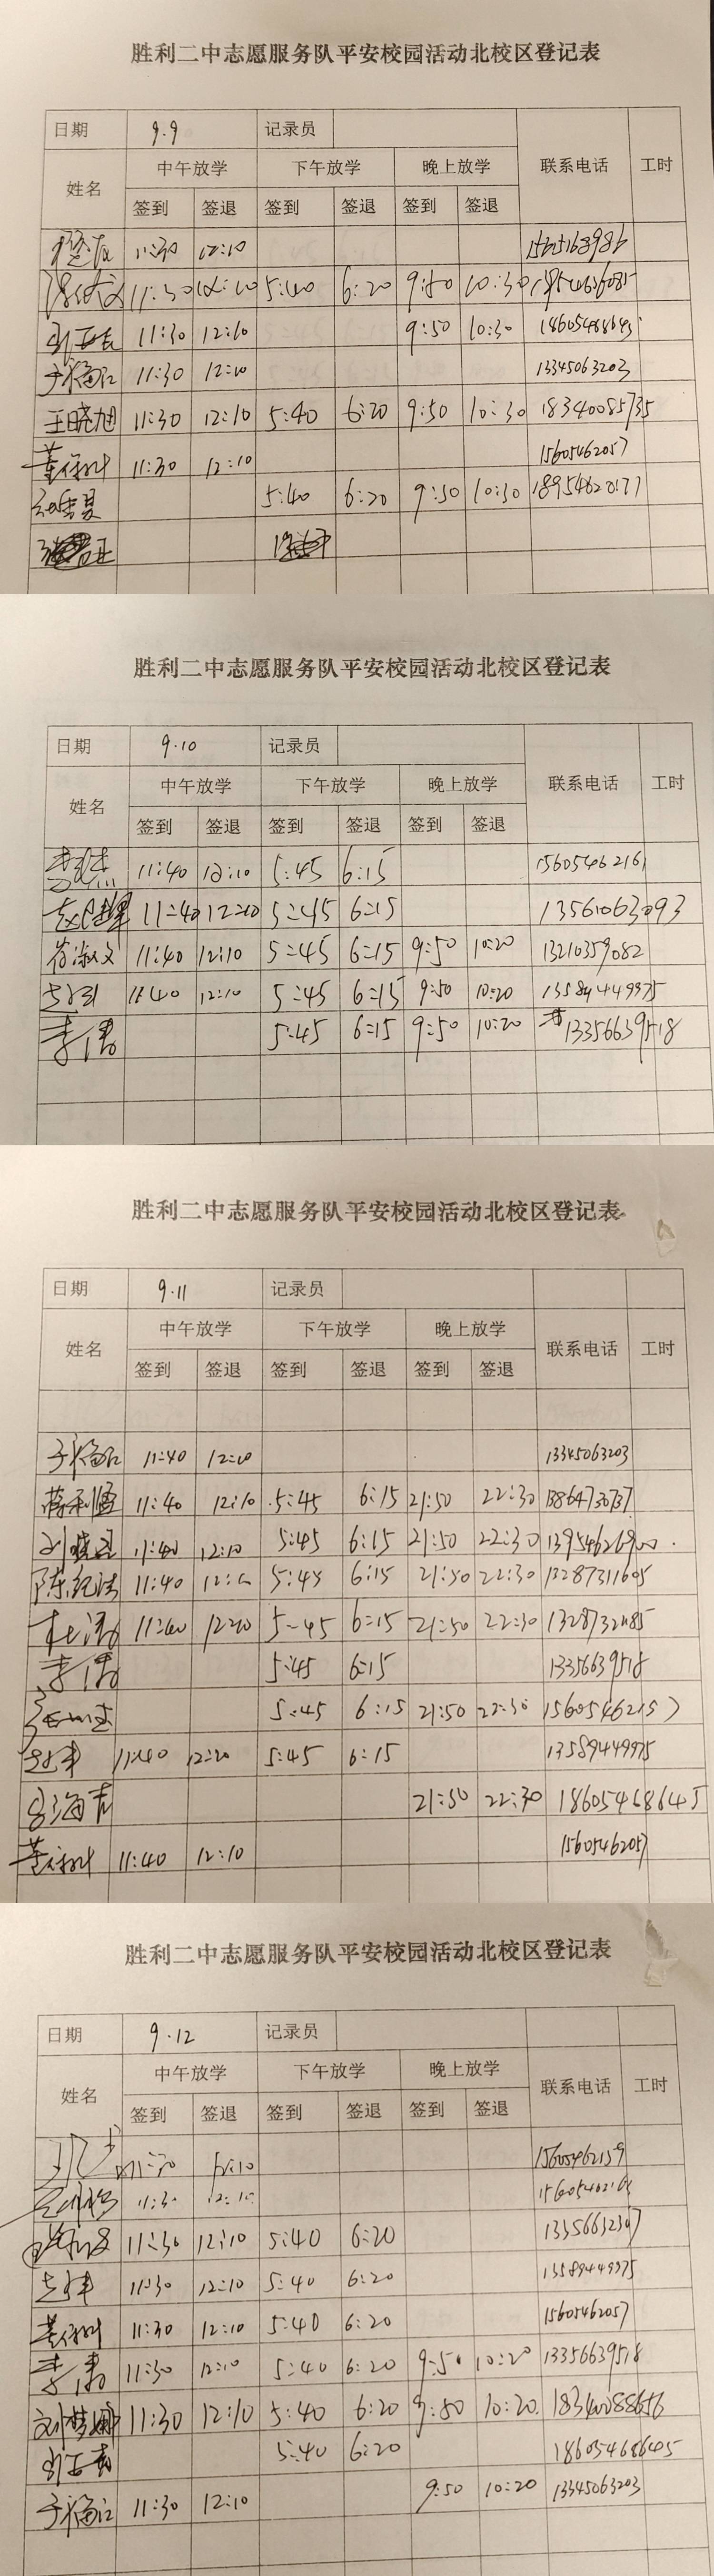 胜利二中志愿服务队平安校园活动北校区登记表
日期 9.9 记录员
姓名 中午放学 下午放学 晚上放学 联系电话 工时
签到 签退 签到 签退 签到 签退
11:30 12:10
11:30 12:10 5:40 6:20 9:50 10:30
11:30 12:10 9:50 10:30
于福江 11:30 12:10 13345063203
王晓旭 11:30 12:10 5:40 6:20 9:50 10:30 18340085735
董 11:30 12:10 15605462057
5:40 6:20 9:50 10:30 18954620177
胜利二中志愿服务队平安校园活动北校区登记表
日期 9.10 记录员
姓名 中午放学 下午放学 晚上放学 联系电话 工时
签到 签退 签到 签退 签到 签退
11:40 12:10 5:45 6:15 15605462161
11:40 12:10 5:45 6:15 13561063093
11:40 12:10 5:45 6:15 9:50 10:20 13210359082
11:40 12:10 5:45 6:15 9:50 10:20 13589449975
李倩 5:45 6:15 9:50 10:20 13356639518
胜利二中志愿服务队平安校园活动北校区登记表
日期 9.11 记录员
姓名 中午放学 下午放学 晚上放学 联系电话 工时
签到 签退 签到 签退 签到 签退
于福江 11:40 12:10 13345063203
11:40 12:10 5:45 6:15 21:50 22:30 13864730737
刘 11:40 12:10 5:45 6:15 21:50 22:30
陈纪法 11:40 5:45 6:15 21:50 22:30 13287311605
杜涛 11:40 12:20 5:45 6:15 21:50 22:30
李倩 5:45 6:15 13356639518
5:45 6:15 21:50 22:30 15605462157
11:40 12:20 5:45 6:15 13589449975
21:50 22:30 18605468645
董 11:40 12:10 15605462057
胜利二中志愿服务队平安校园活动北校区登记表
日期 9.12 记录员
姓名 中午放学 下午放学 晚上放学 联系电话 工时
签到 签退 签到 签退 签到 签退
11:30 12:10 15605462159
11:30 12:10
11:30 12:10 5:40 6:20 13356632307
11:30 12:10 5:40 6:20 13589449975
董 11:30 12:10 5:40 6:20 15605462057
李倩 11:30 12:10 5:40 6:20 9:50 10:20 13356639518
刘梦娜 11:30 12:10 5:40 6:20 9:50 10:20 18340088656
5:40 6:20 18605468645
于福江 11:30 12:10 9:50 10:20 13345063203